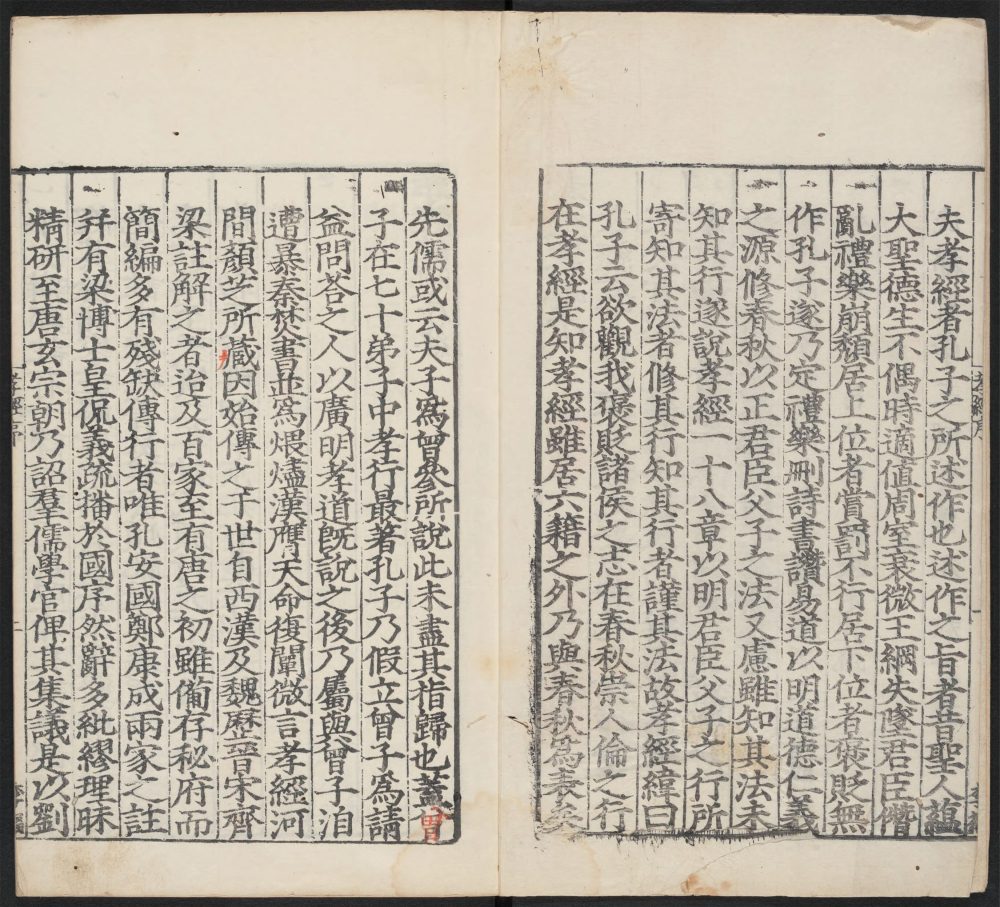 夫孝經者孔子之所述作也述作之旨者昔聖人蘊
大聖德生不偶時適值周室衰微王綱失墜君臣僭
亂禮樂崩頹居上位者賞罰不行居下位者褒貶無
作孔子遂乃定禮樂刪詩書讚易道以明道德仁義
之源修春秋以正君臣父子之法又慮雖知其法未
知其行遂說孝經一十八章以明君臣父子之行所
寄知其法者修其行知其行者謹其法故孝經緯曰
孔子云欲觀我褒貶諸侯之志在春秋崇人倫之行
在孝經是知孝經雖居六籍之外乃與春秋為表矣
先儒或云夫子為曾參所說此未盡其指歸也蓋曾
子在七十弟子中孝行最著孔子乃假立曾子為請
益問荅之人以廣明孝道旣說之後乃屬與曾子洎
遭暴秦焚書並為煨燼漢膺天命復闡微言孝經河
間顏芝所藏因始傳之于世自西漢及魏歷晉宋齊
梁註解之者迨及百家至有唐之初雖備存秘府而
簡編多有殘缺傳行者唯孔安國鄭康成兩家之註
幷有梁博士皇侃義疏播於國序然辭多紕繆理昧
精研至唐玄宗朝乃詔羣儒學官俾其集議是以劉